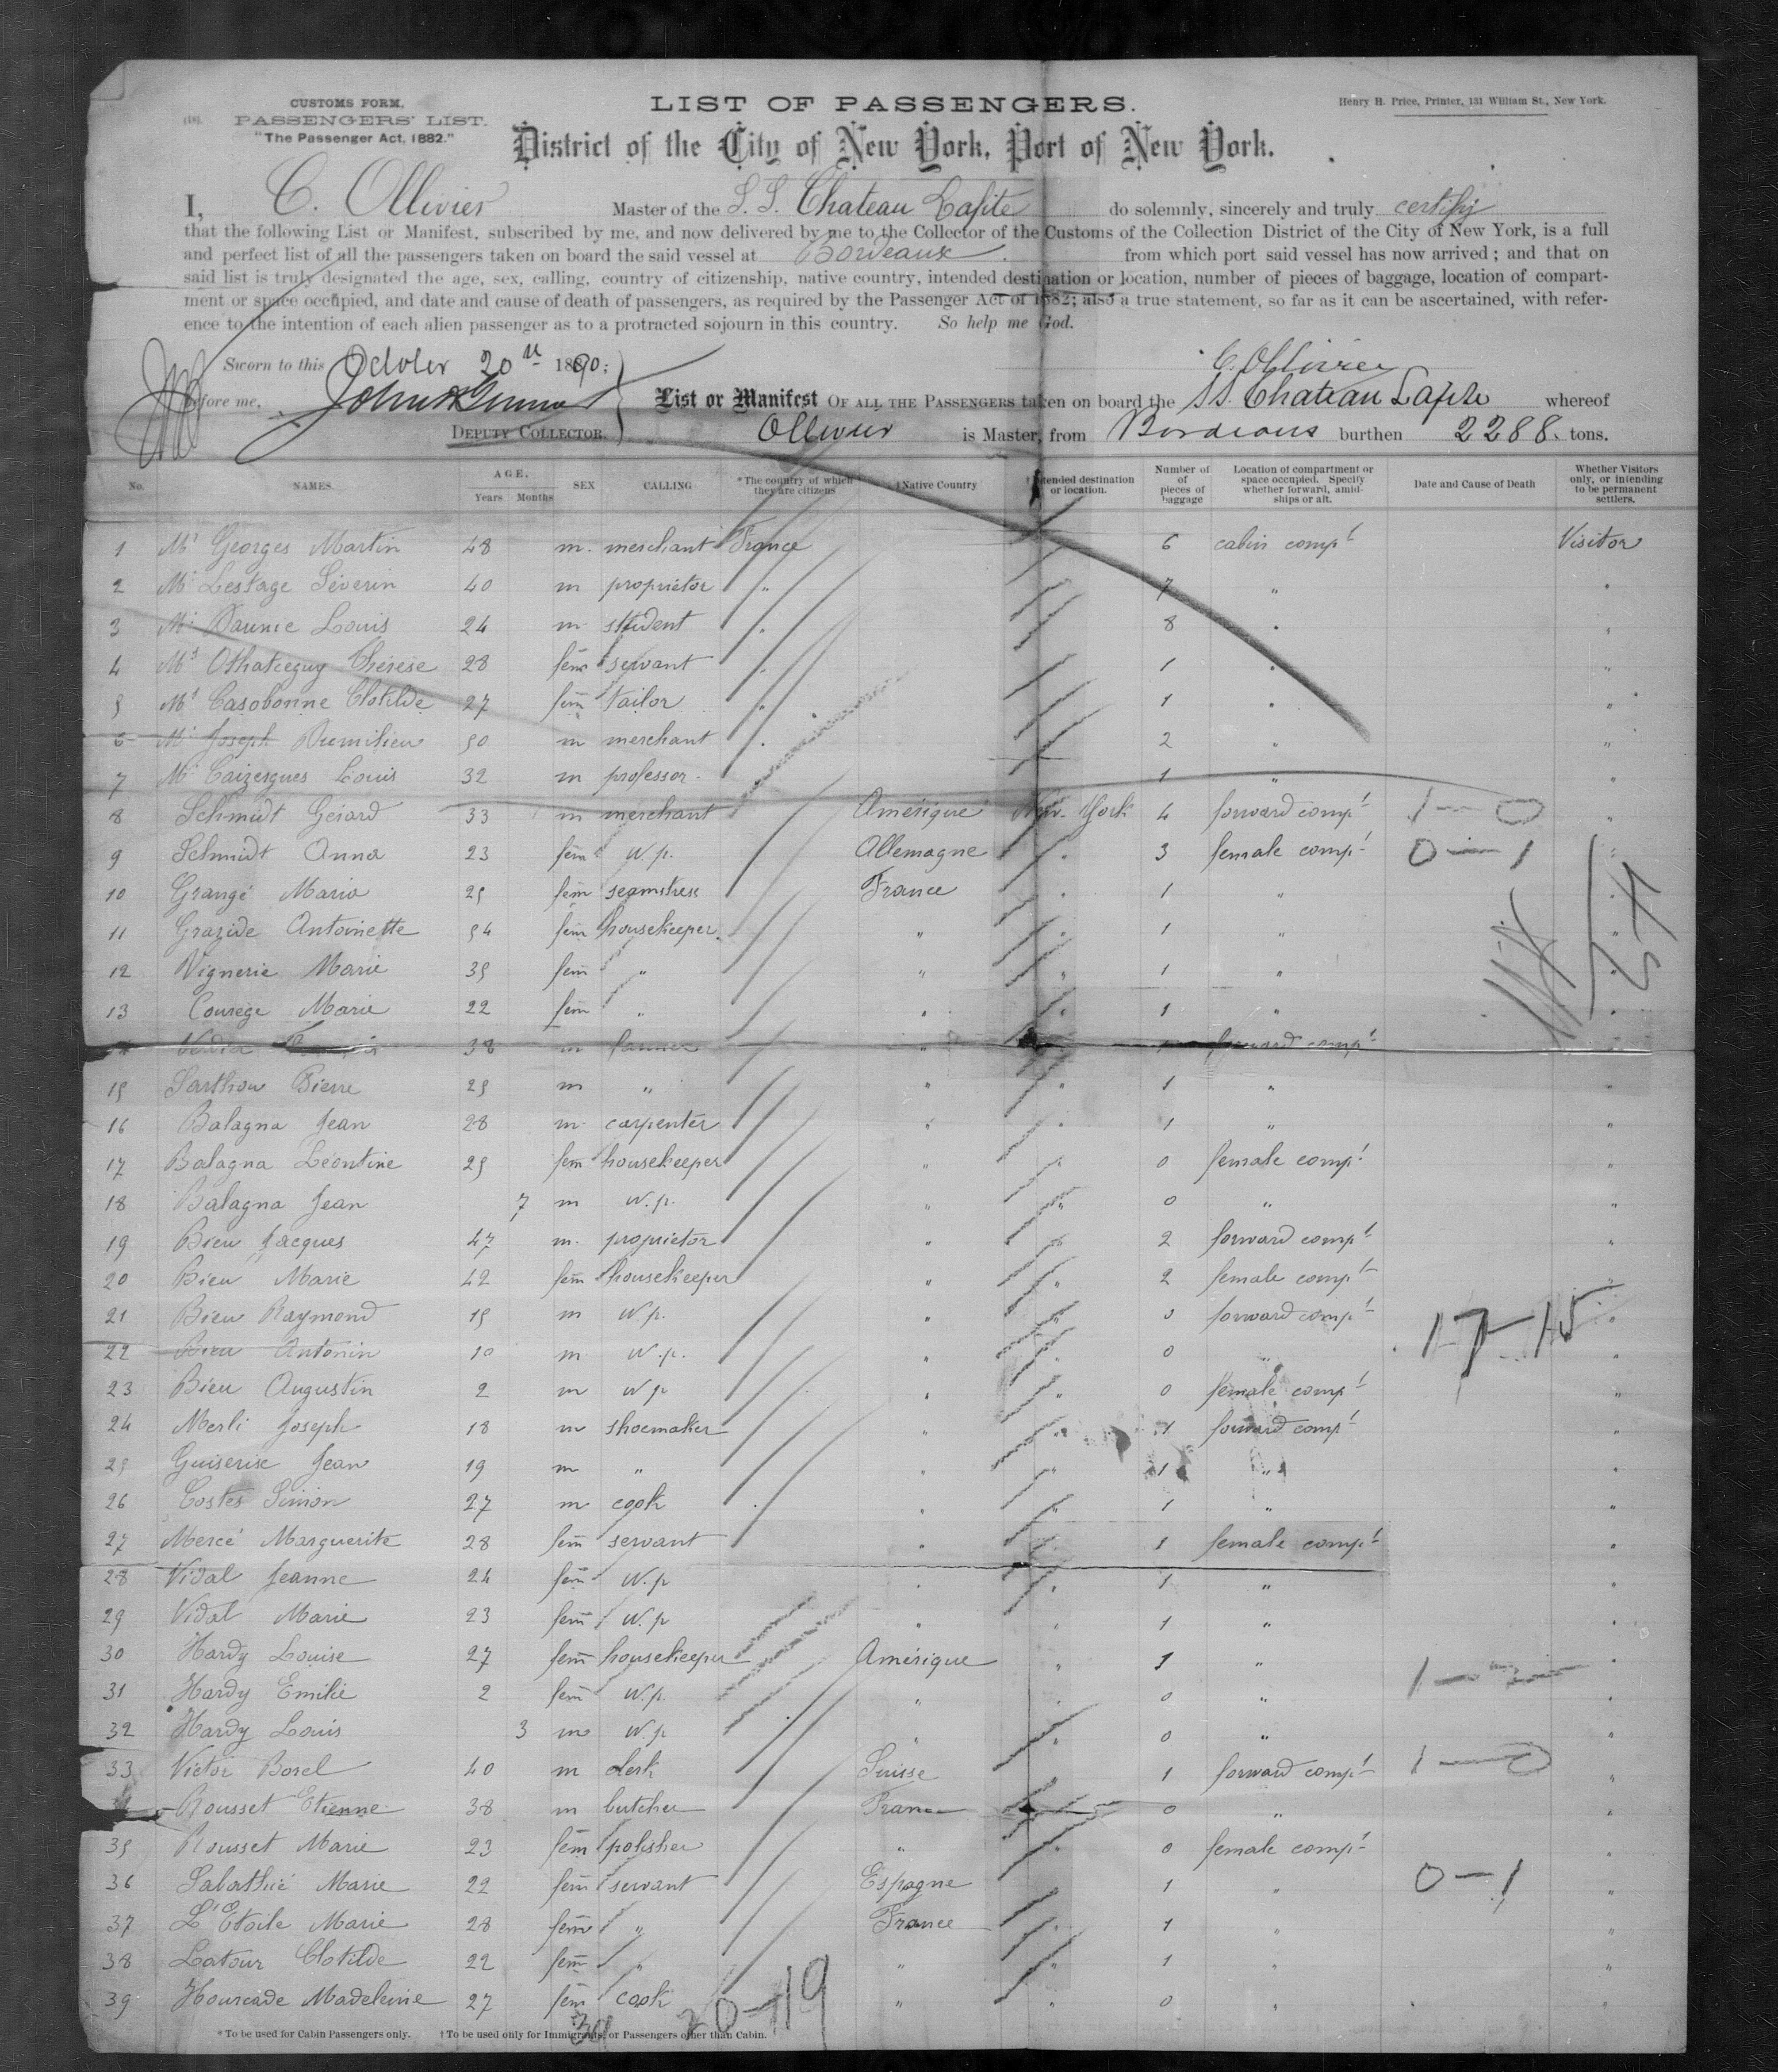 CUSTOMS FORM.
PASSENGERS' LIST.
"The Passenger Act, 1882."
LIST OF PASSENGERS.
Henry H. Price, Printer, 131 William St., New York.
District of the City of New York, Port of New York.
I, C. Ollivier Master of the S. S. Chateau Lafite do solemnly, sincerely and truly certify
that the following List or Manifest, subscribed by me, and now delivered by me to the Collector of the Customs of the Collection District of the City of New York, is a full
and perfect list of all the passengers taken on board the said vessel at Bordeaux from which port said vessel has now arrived; and that on
said list is truly designated the age, sex, calling, country of citizenship, native country, intended destination or location, number of pieces of baggage, location of compart-
ment or space occupied, and date and cause of death of passengers, as required by the Passenger Act of 1882; also a true statement, so far as it can be ascertained, with refer-
ence to the intention of each alien passenger as to a protracted sojourn in this country. So help me God.
Sworn to this October 20th 1890; C. Ollivier
before me, List or Manifest OF ALL THE PASSENGERS taken on board the SS. Chateau Lafite whereof
DEPUTY COLLECTOR. Ollivier is Master, from Bordeaux burthen 2288. tons.
No. NAMES. AGE. Years Months SEX CALLING *The country of which they are citizens †Native Country Intended destination or location. Number of pieces of baggage Location of compartment or space occupied. Specify whether forward, amidships or aft. Date and Cause of Death Whether Visitors only, or intending to be permanent settlers.
1 Mr Georges Martin 48 m. merchant France 6 cabin compt Visitor
2 Mr Lestage Séverin 40 m proprietor " 7 " "
3 Mr Daunic Louis 24 m. student " 8 " "
4 Ms Othateguy Thérèse 28 fem. servant " 1 " "
5 Ms Casobonne Clotilde 27 fem tailor " 1 " "
6 Mr Joseph Dumilieu 50 m merchant " 2 " "
7 Mr Caizergues Louis 32 m professor 1 " "
8 Schmidt Gérard 33 m merchant Amérique New-York 4 forward compt 1—0 "
9 Schmidt Anna 23 fem w.p. Allemagne " 3 female compt 0—1 "
10 Grangé Maria 25 fem seamstress France " 1 " "
11 Grazide Antoinette 54 fem housekeeper " " 1 " "
12 Vignerie Marie 35 fem " " " 1 " "
13 Courège Marie 22 fem " " " 1 " "
38 m farmer " forward compt
15 Sarthou Pierre 25 m " " " 1 " "
16 Balagna Jean 28 m carpenter " " 1 " "
17 Balagna Léontine 25 fem housekeeper " " 0 female compt "
18 Balagna Jean 7 m w.p. " " 0 " "
19 Bieu Jacques 47 m. proprietor " " 2 forward compt "
20 Bieu Marie 42 fem housekeeper " " 2 female compt "
21 Bieu Raymond 15 m w.p. " " 0 forward compt 17—15 "
22 Bieu Antonin 10 m w.p. " " 0 " "
23 Bieu Augustin 2 m w.p " " 0 female compt "
24 Merli Joseph 18 m shoemaker " " 1 forward compt "
25 Guiserix Jean 19 m " " " 1 " "
26 Costes Simon 27 m cook " " 1 " "
27 Mercé Marguerite 28 fem servant " " 1 female compt "
28 Vidal Jeanne 24 fem w.p " " 1 " "
29 Vidal Marie 23 fem w.p " " 1 " "
30 Hardy Louise 27 fem housekeeper Amérique " 1 " "
31 Hardy Emilie 2 fem w.p. " " 0 " "
32 Hardy Louis 3 m w.p " " 0 " "
33 Victor Borel 40 m clerk Suisse " 1 forward compt 1—0 "
Rousset Etienne 38 m butcher France 0 " "
35 Rousset Marie 23 fem polisher " " 0 female compt "
36 Sabathié Marie 22 fem servant Espagne 1 " 0—1 "
37 L'Etoile Marie 28 fem " France " 1 " "
38 Latour Clotilde 22 fem " " " 1 " "
39 Hourcade Madeleine 27 fem cook " " 0 " "
39 20—19
*To be used for Cabin Passengers only. †To be used only for Immigrants, or Passengers other than Cabin.